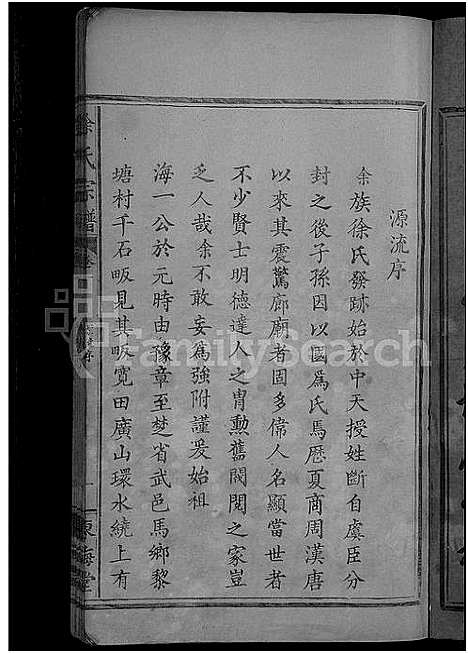 源流序
余族徐氏發跡始於中天授姓斷自虞臣分
封之後子孫因以國爲氏焉歷夏商周漢唐
以來其震驚廊廟者固多偉人名顯當世者
不少賢士明德達人之胄勳舊閥閱之家豈
乏人哉余不敢妄爲強附謹爰始祖
海一公於元時由豫章至楚省武邑馬鄉黎
塘村千石畈見其畈寬田廣山環水繞上有
徐氏宗譜
卷
源流序
一
東海堂
FamilySearch